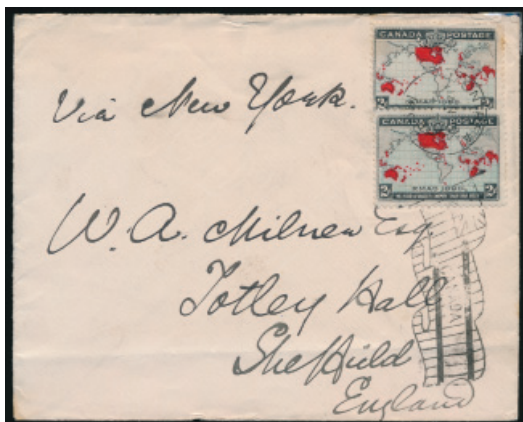 CANADA POSTAGE
2c XMAS 1898 2c
CANADA POSTAGE
2c XMAS 1898 2c
Via New York.
W. A. Milner Esq
Totley Hall
Sheffield
England